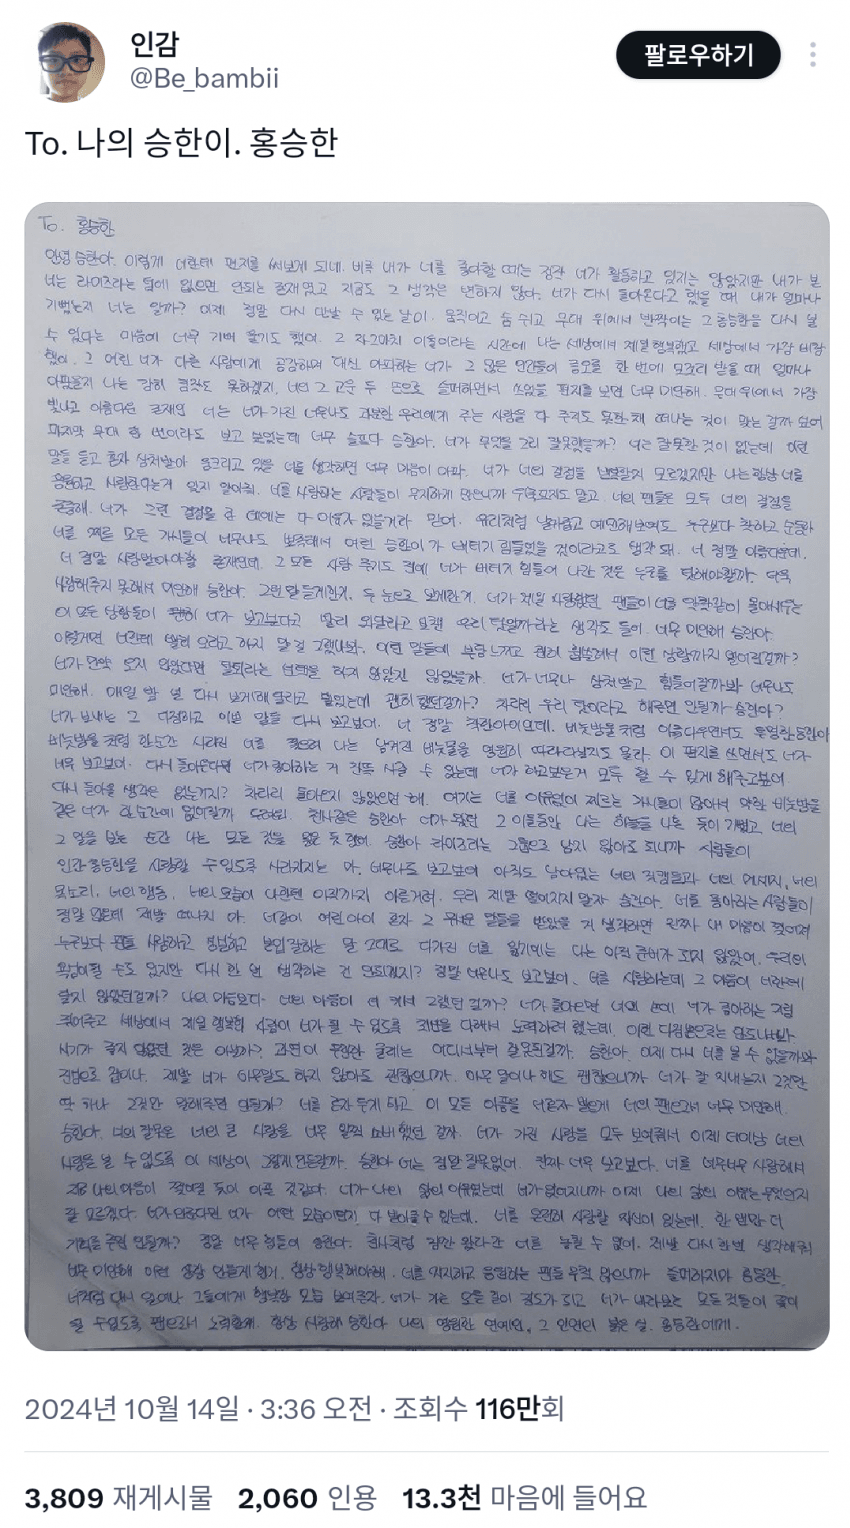 인감
@Be_bambii
팔로우하기
To. 나의 승한이. 홍승한
To. 홍승한
안녕 승한아. 이렇게 너한테 편지를 써보게 되네. 비록 내가 너를 좋아할 때는 정작 너가 활동하고 있지는 않았지만 내가 본
너는 라이즈라는 팀에 없으면 안되는 존재였고 지금도 그 생각은 변하지 않아. 너가 다시 돌아온다고 했을 때 내가 얼마나
기뻤는지 너는 알까? 이제 정말 다시 만날 수 있는 날이. 움직이고 숨 쉬고 무대 위에서 반짝이는 그 홍승한을 다시 볼
수 있다는 마음에 너무 기뻐 울기도 했어. 그 자그마치 이틀이라는 시간에 나는 세상에서 제일 행복했고 세상에서 가장 비참
했어. 그 어린 너가 다른 사람에게 공감하며 대신 아파하는 너가 그 많은 인간들의 증오를 한 번에 모조리 받을 때 얼마나
아팠을지 나는 감히 짐작도 못하겠지. 너의 그 고운 두 손으로 슬퍼하면서 쓰였을 편지를 보면 너무 미안해. 무대 위에서 가장
빛나고 아름다운 존재인 너는 너가 가진 너무나도 과분한 우리에게 주는 사랑을 다 주지도 못한 채 떠나는 것이 맞는 걸까 싶어
마지막 무대 한 번이라도 보고 싶었는데 너무 슬프다 승한아. 너가 무엇을 그리 잘못했을까? 너는 잘못한 것이 없는데 이런
말들 듣고 혼자 상처받아 웅크리고 있을 너를 생각하면 너무 마음이 아파. 너가 너의 결정을 할지 모르겠지만 나는 항상 너를
응원하고 사랑한다는거 잊지 말아줘. 너를 사랑하는 사람들이 무지하게 많으니까 말고. 너의 팬들은 모두 너의 결정을
존중해. 너가 그런 결정을 한 데에는 다 이유가 있을거라 믿어. 유리처럼 날카롭고 예민해보여도 누구보다 착하고 순둥한
너를 찌른 모든 가시들이 너무나도 뾰족해서 어린 승한이가 버티기 힘들었을 것이라고도 생각 돼. 너 정말 아름다운데.
너 정말 사랑받아야할 존재인데. 그 모든 사랑 주기도 전에 너가 버티기 힘들어 나간 것은 누구를 탓해야할까. 더욱
사랑해주지 못해서 미안해 승한아. 그런 말 듣게한거, 두 눈으로 보게한거. 너가 제일 사랑했던 팬들이 너를 같이 몰아세우는
이 모든 상황들이 괜히 너가 보고싶다고 빨리 와달라고 보챈 우리 탓일까라는 생각도 들어. 너무 미안해 승한아.
이럴거면 너한테 빨리 오라고 하지 말 걸 그랬나봐. 이런 말들에 부담 느끼고 괜히 휩쓸려서 이런 상황까지 벌어진걸까?
너가 만약 오지 않았다면 탈퇴라는 선택을 하지 않았진 않았을까. 너가 너무나 상처받고 힘들어할까봐 너무나도
미안해. 매일 밤 널 다시 보게해 달라고 빌었는데 괜히 했던걸까? 차라리 우리 탓이라고 해주면 안될까 승한아?
너가 보내는 그 다정하고 이쁜 말을 다시 보고싶어. 너 정말 착한아이인데. 비눗방울처럼 아름다우면서도 투명한승한아
비눗방울처럼 한순간 사라진 너를 찾으려 나는 남겨진 비눗물을 영원히 따라다닐지도 몰라. 이 편지를 쓰면서도 너가
너무 보고싶어. 다시 돌아온다면 너가 좋아하는 거 잔뜩 사줄 수 있는데 너가 하고싶은거 모두 할 수 있게 해주고싶어
다시 돌아올 생각은 없는거지? 차라리 돌아오지 않았으면 해. 여기는 너를 이유없이 찌르는 가시들이 많아서 약한 비눗방울
같은 너가 한순간에 없어질까 두려워. 천사같은 승한아 너가 왔던 그 이틀동안 나는 하늘을 나는 듯이 기뻤고 너의
그 말을 보는 순간 나는 모든 것을 잃은 듯 했어. 승한아 라이즈라는 그룹으로 남지 않아도 되니까 사람들이
인간 홍승한을 사랑할 수 있도록 사라지지는 마. 너무나도 보고싶어 아직도 남아있는 너의 직캠들과 너의 메시지, 너의
목소리, 너의 행동, 너의 모습이 나한텐 아직까지 아른거려. 우리 제발 떨어지지 말자 승한아. 너를 좋아하는 사람들이
정말 많은데 제발 떠나지 마. 너같이 어린 아이 혼자 그 무서운 말들을 받았을 거 생각하면 진짜 내 마음이 찢어져
누구보다 팬들 사랑하고 성실하고 본업 잘하는 말 그대로 다가진 너를 잃기에는 나는 아직 준비가 되지 않았어. 우리의
욕심이 될 수도 있지만 다시 한 번 생각하는 건 안되겠지? 정말 너무나도 보고싶어. 너를 사랑하는데 그 마음이 너한테
닿지 않았던걸까? 나의 마음보다 너의 아픔이 더 커서 그랬던 걸까? 너가 돌아오면 너의 손에 너가 좋아하는 거
쥐어주고 세상에서 제일 행복한 사람이 너가 될 수 있도록 최선을 다해서 노력하려 했는데, 이런 다짐만으로는 안되나봐
시기가 좋지 않았던 것은 아닐까? 과연 이 굴레는 어디서부터 잘못된걸까. 승한아. 이제 다시 너를 볼 수 없을까봐
진심으로 겁이나. 제발 너가 아무말도 하지 않아도 괜찮으니까. 아무 말이나 해도 괜찮으니까 너가 잘 지내는지 그것만
딱 하나 그것만 말해주면 안될까? 너를 혼자 두게 하고 이 모든 아픔을 너혼자 받은게 너의 팬으로서 너무 미안해.
승한아. 너의 잘못은 너의 큰 사랑을 너무 일찍 소비했던 걸까. 너가 가진 사랑을 모두 보여줘서 이제 더이상 너의
사랑을 볼 수 없도록 이 세상이 그렇게 만든걸까. 승한아 너는 정말 잘못없어. 진짜 너무 보고싶다. 너를 너무너무 사랑해서
지금 나의 마음이 찢어질 듯이 아픈 것 같다. 너가 나의 삶의 이유였는데 너가 없어지니까 이제 나의 삶의 이유는 무엇인지
잘 모르겠다. 너가 있다면 너가 어떤 모습이던지 다 받아줄 수 있는데. 너를 온전히 사랑할 자신이 있는데. 한 번만 더
기회를 주면 안될까? 정말 너무 힘들어 승한아. 천사처럼 잠깐 왔다간 너를 놓칠 수 없어. 제발 다시 한번 생각해줘
너무 미안해 이런 생각 만들게 한거. 항상 행복해야해. 너를 지지하고 응원하는 팬들 무척 많으니까 슬퍼하지마 승한아.
너처럼 다시 일어나 그들에게 행복한 모습 보여주자. 너가 가는 모든 길이 정도가 되고 너가 내려보는 모든 것들이 꽃이
될 수 있도록 팬으로서 노력할게. 항상 사랑해 승한아 나의 영원한 연예인, 그 인연의 붉은 실. 홍승한에게.
2024년 10월 14일 · 3:36 오전 · 조회수 116만회
3,809 재게시물 2,060 인용 13.3천 마음에 들어요